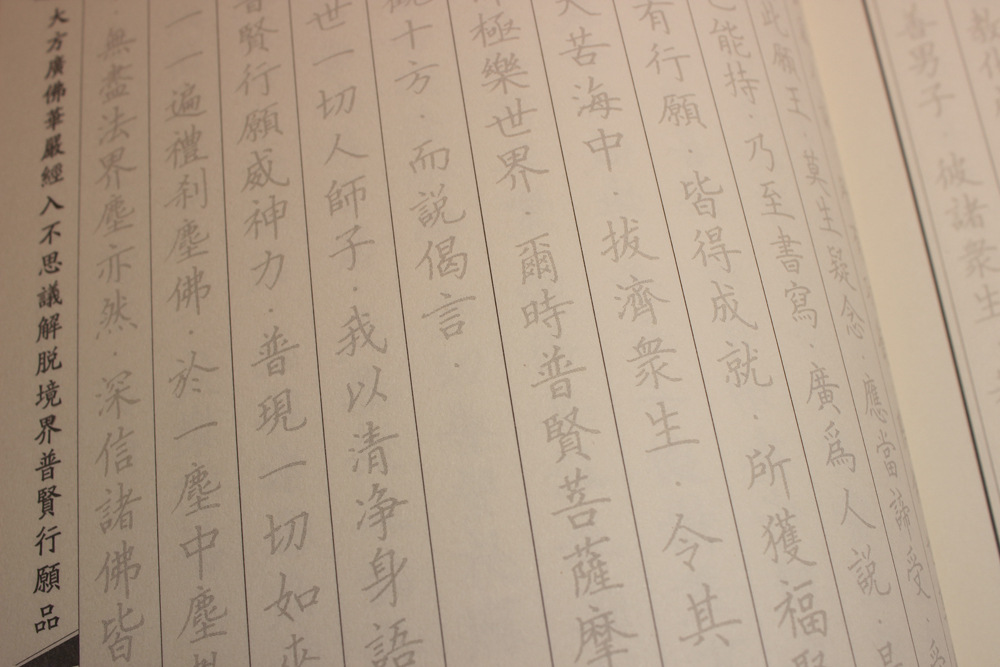 教化
善男子·彼諸衆生
此願王·莫生疑念·應當諦受·
能持·乃至書寫·廣爲人說·
有行願·皆得成就·所獲福
苦海中·拔濟衆生·令其
極樂世界·爾時普賢菩薩摩
十方·而說偈言·
世一切人師子·我以清淨身語
普賢行願威神力·普現一切如來
一一遍禮刹塵佛·於一塵中塵
無盡法界塵亦然·深信諸佛皆
大方廣佛華嚴經入不思議解脱境界普賢行願品